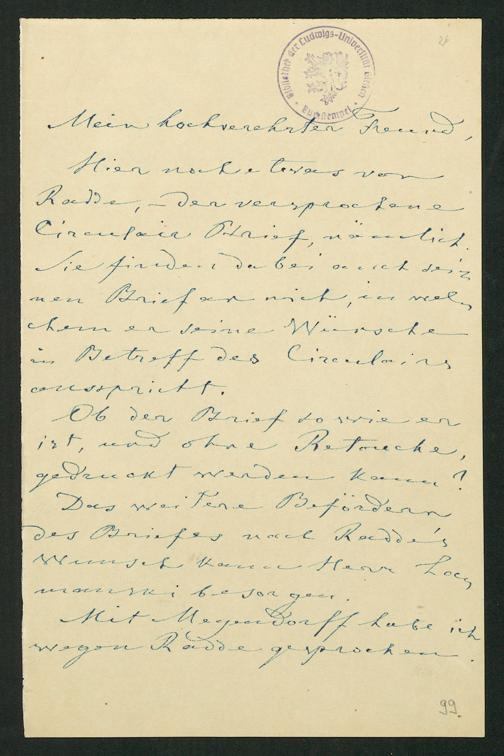 28
Bibliothek der Ludwigs-Universität Giessen
Mein hochverehrter Freund,
Hier noch etwas von
Radde, – der versprochene
Circulair Brief, nämlich.
Sie finden dabei auch sei-
nen Brief an mich, in wel-
chem er seine Wünsche
in Betreff des Circulairs
ausspricht.
Ob der Brief so wie er
ist, und ohne Retouche,
gedruckt werden kann?
Das weitere Befördern
des Briefes nach Radde's
Wunsch kann Herr
manski besorgen.
Mit Meyendorff habe ich
wegen Radde gesprochen.
99.